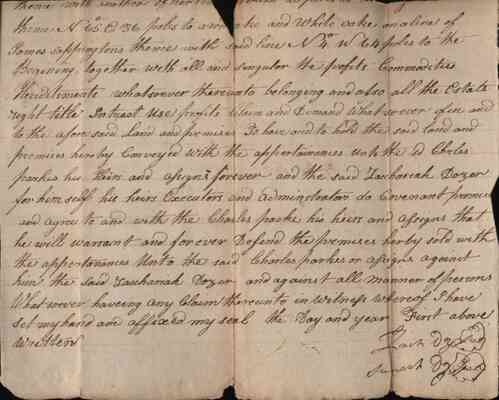 thence with another of her
thence N 65 E 36 poles to a and White oake on a line of
James Sappingtons thence with said line N 4 W 64 poles to the
Begining together with all and singular the profits Commodities
Heridiliments whatsoever thereunto belonging and also all the Estate
right title Intreast use profits Claim and Demand whatsoever of in and
to the afore said Land and premises To have and to hold the said land and
premises hereby Conveyed with the appertainances unto the sd Charles
parkes his Heirs and assigns forever and the said Zachariah Dozer
for him self his heirs Executors and Administrators do Covenant promise
and agree to and with the Charles parke his heirs and assigns that
he will warrant and for ever Defend the premises herby sold with
the appertainances Unto the said Charles parkes or assigns against
him the said Zacchariah Dozer and against all manner of persons
Whatsoever haveing any Claim thereunto in witness whereof I have
set my hand and affixed my seal the Day and year First above
Written
Zach Dozer